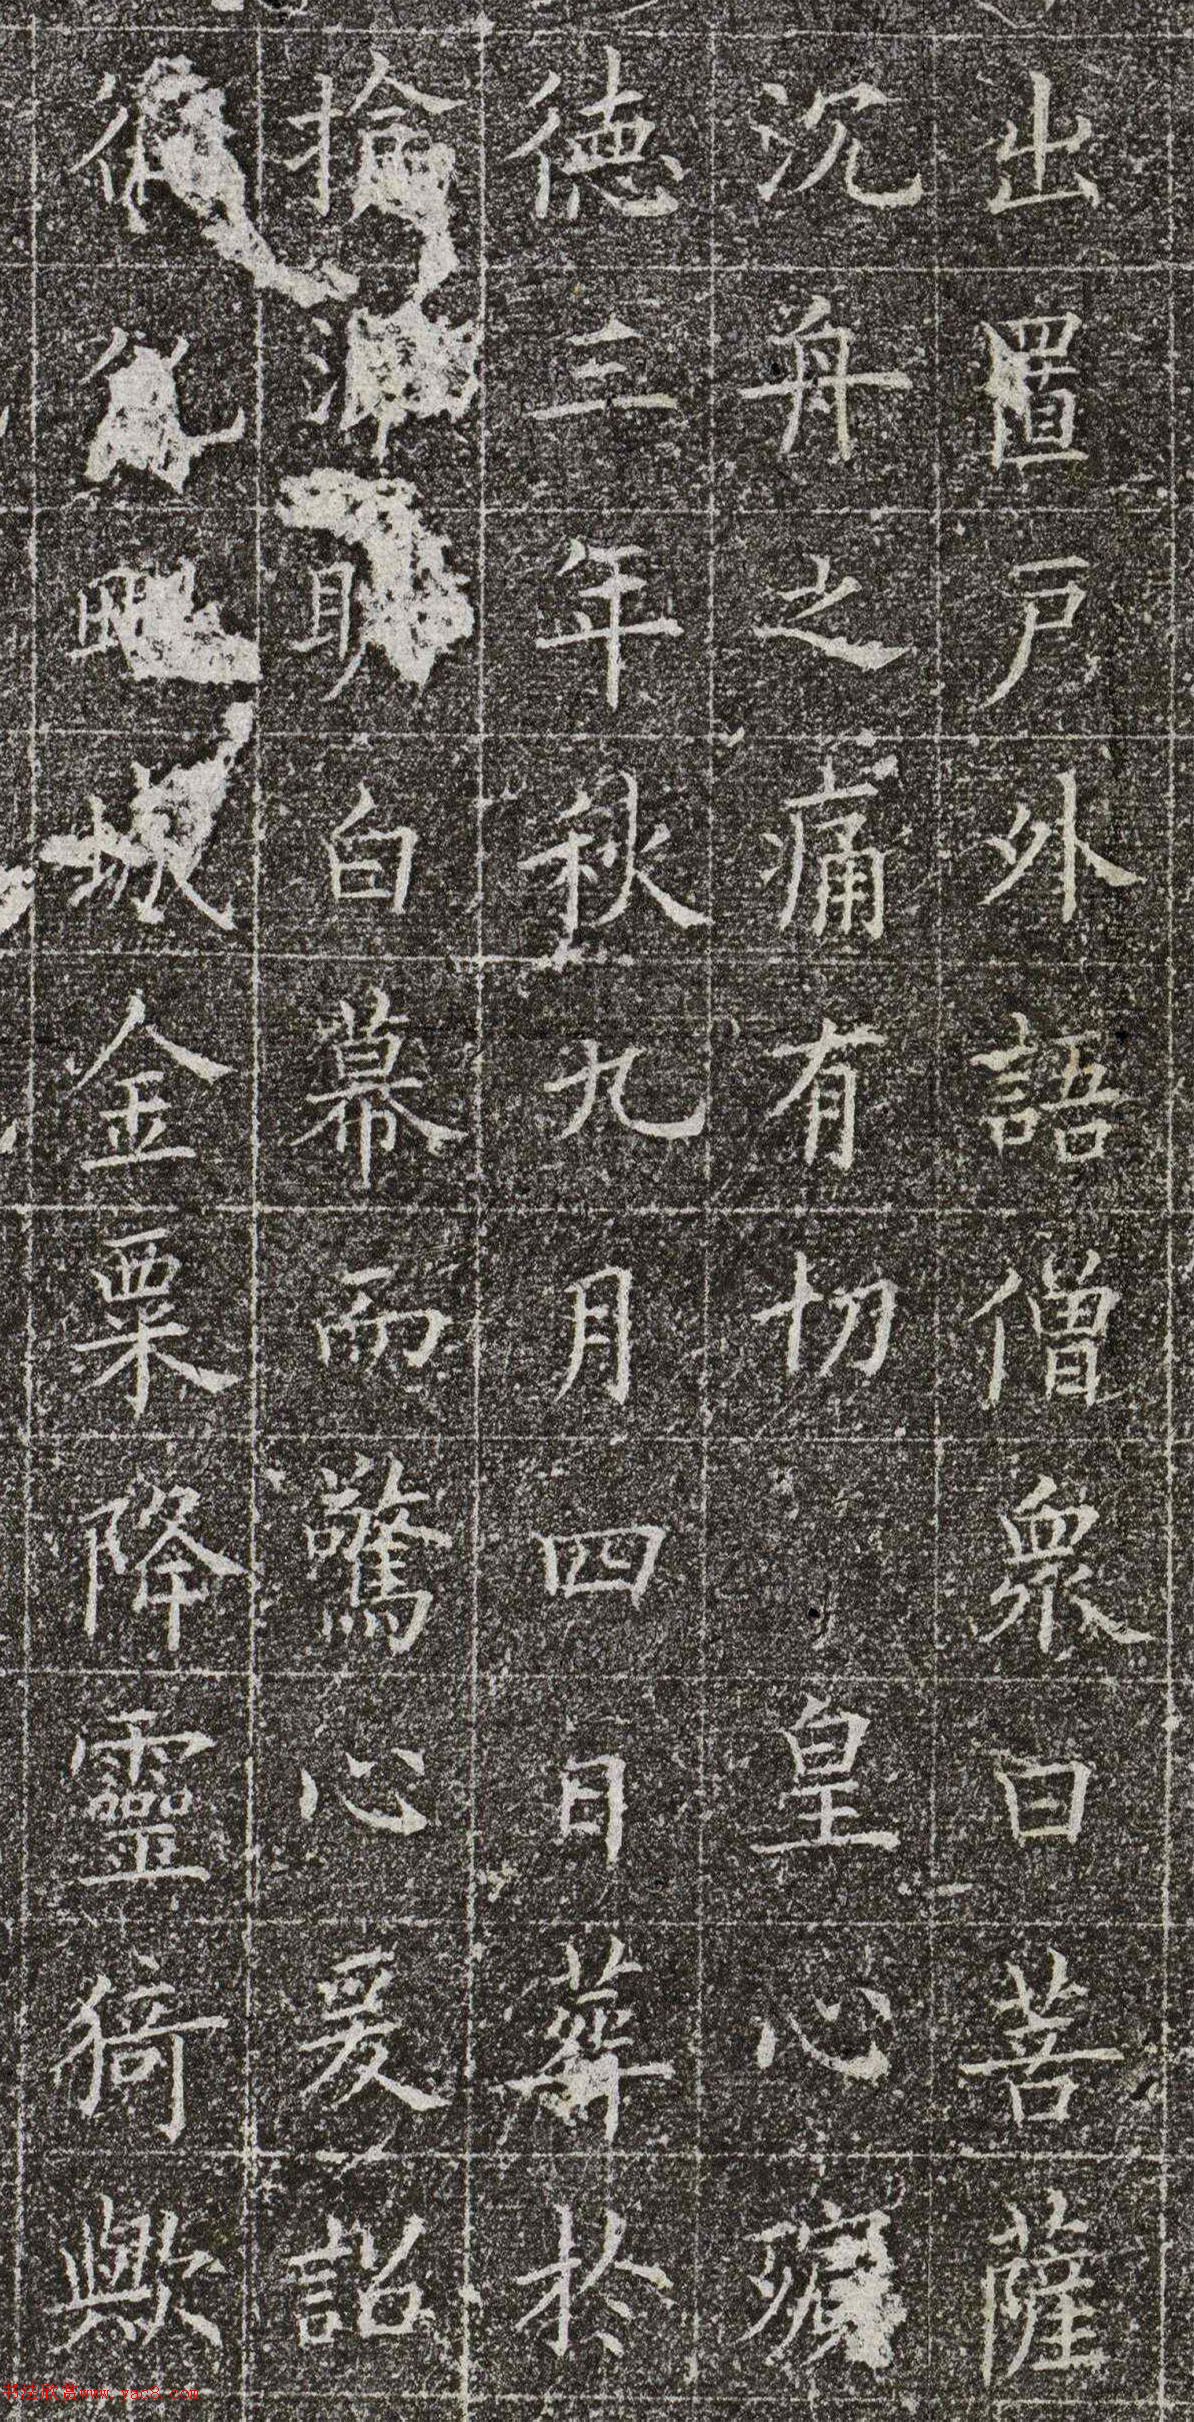 出置戶外語僧衆曰菩薩
沉舟之痛有切皇心殯
德三年秋九月四日葬於
掩 䏁白幕而驚心爰詔
城金粟降靈猗歟
书法欣赏www.yac8.com